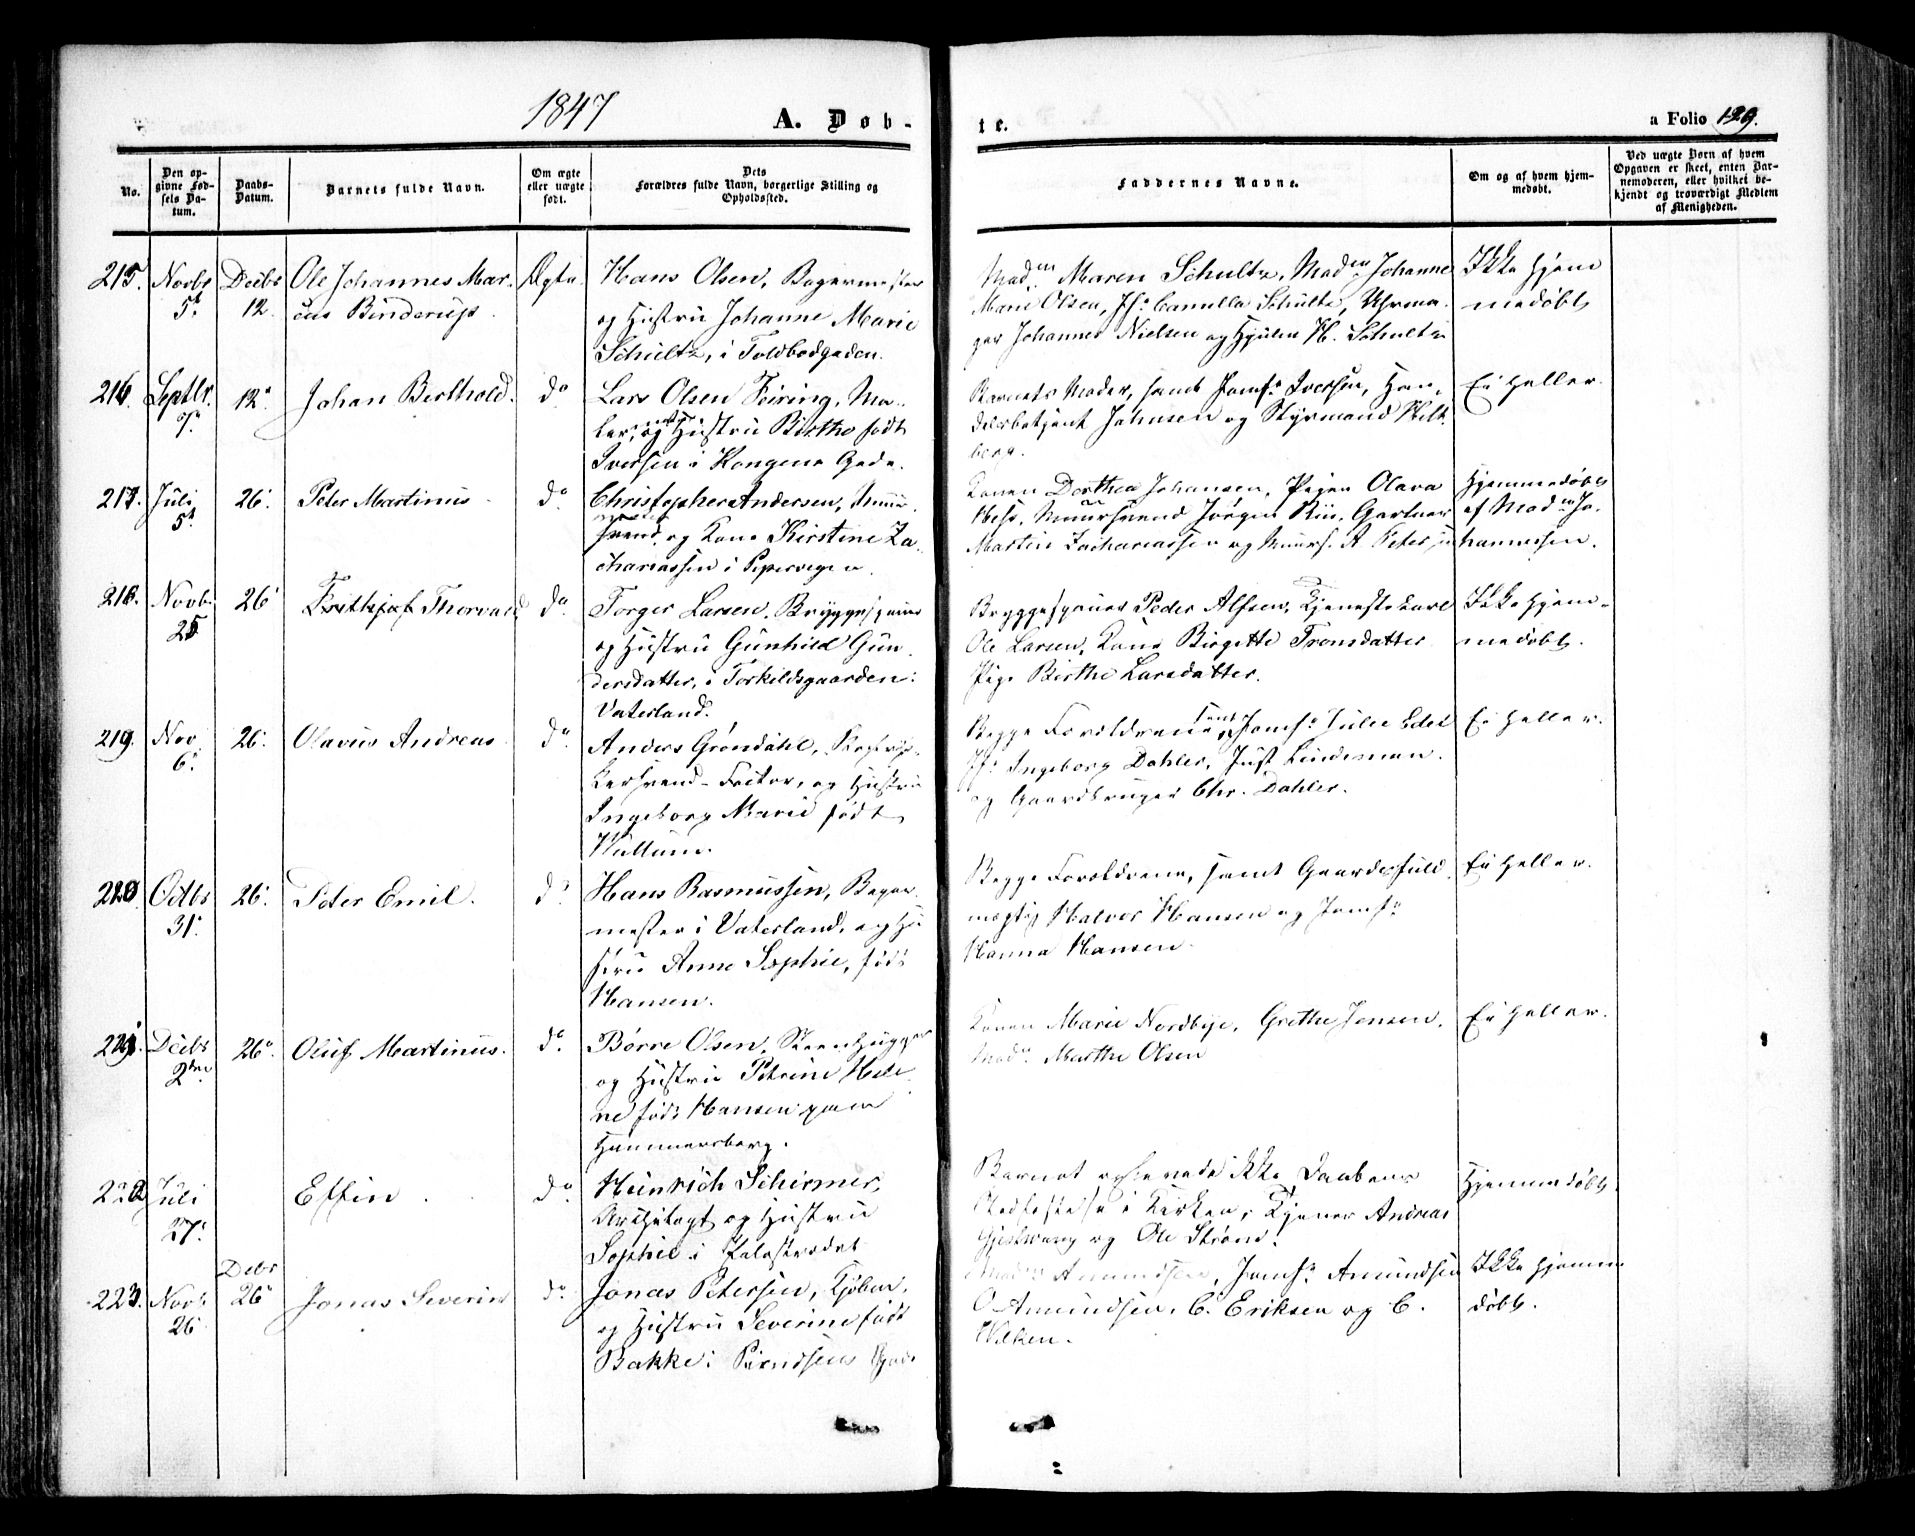 1847
A. Døb-
te.
a Folio 129.
No.
Den op-
givne Fød-
sels Da-
tum.
Daabs-
Datum.
Barnets fulde Navn.
Om ægte
eller uægte
født.
Dets
Forældres fulde Navn, borgerlige Stilling og
Opholdssted.
Faddernes Navne.
Om og af hvem hjem-
medøbt.
Ved uægte Børn af hvem
Opgaven er skeet, enten Bar-
nemoderen, eller hvilket be-
kjendt og troværdigt Medlem
af Menigheden.
215. Novbr 5t Decbr 12. Ole Johannes Mar-
cus Binderup. Ægte
Hans Olsen, Bagermester
og Hustru Johanne Marie
Schultz, i Toldbodgaden.
Madm Maren Schultz, Madm Johanne
Marie Olsen, Jfr Camilla Schultz, Uhrma-
ger Johannes Nielsen og H. Schultz
Ikke hjem
medøbt
216. Septbr. 7. 12. Johan Berthold. do
Lars Olsen Feiring, Ma-
ler, og Hustru Birthe født
Iversen i Kongens Gade.
Barnets Moder, samt Jomfr Iversen, Han-
delsbetjent Johnsen og Styrmand
berg.
Ei heller.
217. Juli 5t 26. Peter Martinus do
Christopher Andersen, Muur-
svend og Kone Kirstine Za-
chariassen i Pipervigen.
Konen Dorthea Johansen, Pigen Olava
Muursvend Jørgen Gartner
Martin Zachariassen og Muurs. A. Peter
Hjemmedøbt
af Madm Jo-
hannessen.
218. Novbr. 25 26 Frithjof Thorvald do
Torger Larsen, Bryggesjauer
og Hustru Gunhild Gun-
dersdatter, i Torkildsgaarden i
Vaterland.
Bryggesjauer Peder Alfsen, Tjenestekarl
Ole Larsen, Kone Birgitte Tronsdatter
Pige Birthe Larsdatter.
Ikke hjem-
medøbt.
219. Nov. 6. 26. Olavus Andreas do
Anders Grøndahl,
svend-Factor, og Hustru
Ingeborg Marie født
Wullum.
Begge Forældrene samt Jomfr Julie
Jfr Ingeborg Dahler, Just Lindeman
og Gaardbruger Chr. Dahler.
Ei heller.
220. Octbr 31. 26. Peter Emil. do
Hans Rasmussen, Bager-
mester i Vaterland, og Hu-
stru Anne Sophie, født
Hansen.
Begge Forældrene, samt Gaardsfuld-
mægtig Halvor Hansen og Jomfr
Hanna Hansen.
Ei heller.
221. Decbr 2den 26. Oluf Martinus. do
Børre Olsen, Steenhugger
og Hustru Petrine Hele-
ne født Hansen paa
Hammersborg.
Konen Marie Nordbye, Grethe Jensen,
Madm Marthe Olsen
Ei heller.
222 Juli 27. Effin do
Heinrich Schirmer,
Architegt og Hustru
Sophie i
Barnet oplevede ikke Daabens
Stadfestelse i Kirken, Tjener Andreas
og Ole Strøm.
Hjemmedøbt.
223. Novbr 26 Decbr 26 Jonas Severin do
Jonas Petersen, Kjøbm.
og Hustru Severine født
Bakke i
Madm Amundsen, Jomfr Amundsen
O. Amundsen, C. Eriksen og C.
Wilken.
Ikke hjemme
døbt.